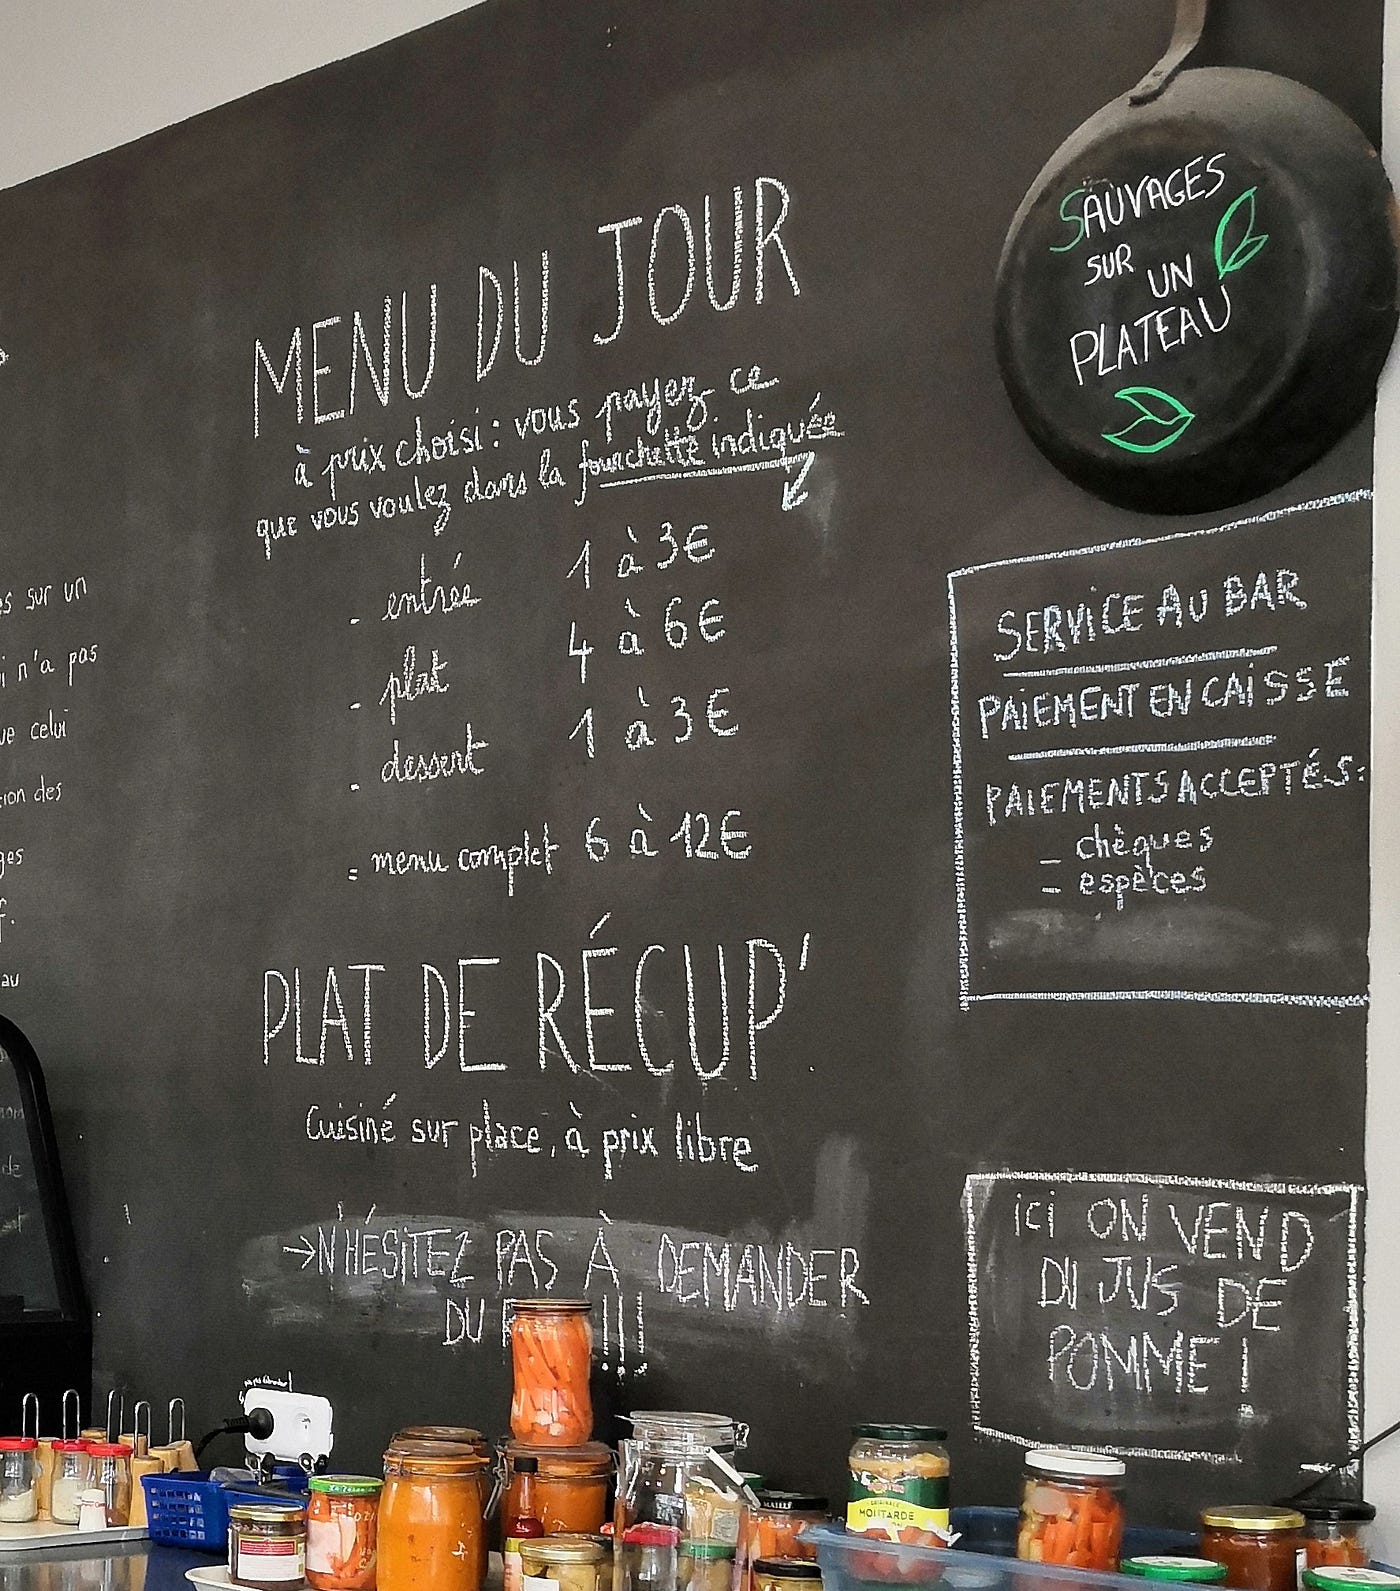 MENU DU JOUR
à prix choisi : vous payez ce
que vous voulez dans la fourchette indiquée
- entrée 1 à 3€
- plat 4 à 6€
- dessert 1 à 3€
= menu complet 6 à 12€
PLAT DE RÉCUP'
Cuisiné sur place, à prix libre
→N'HÉSITEZ PAS À DEMANDER
DU !!!
SAUVAGES
SUR
UN
PLATEAU
SERVICE AU BAR
PAIEMENT EN CAISSE
PAIEMENTS ACCEPTÉS:
- chèques
- espèces
ICI ON VEND
DU JUS DE
POMME !
sur un
n'a pas
celui
des
au
MOUTARDE